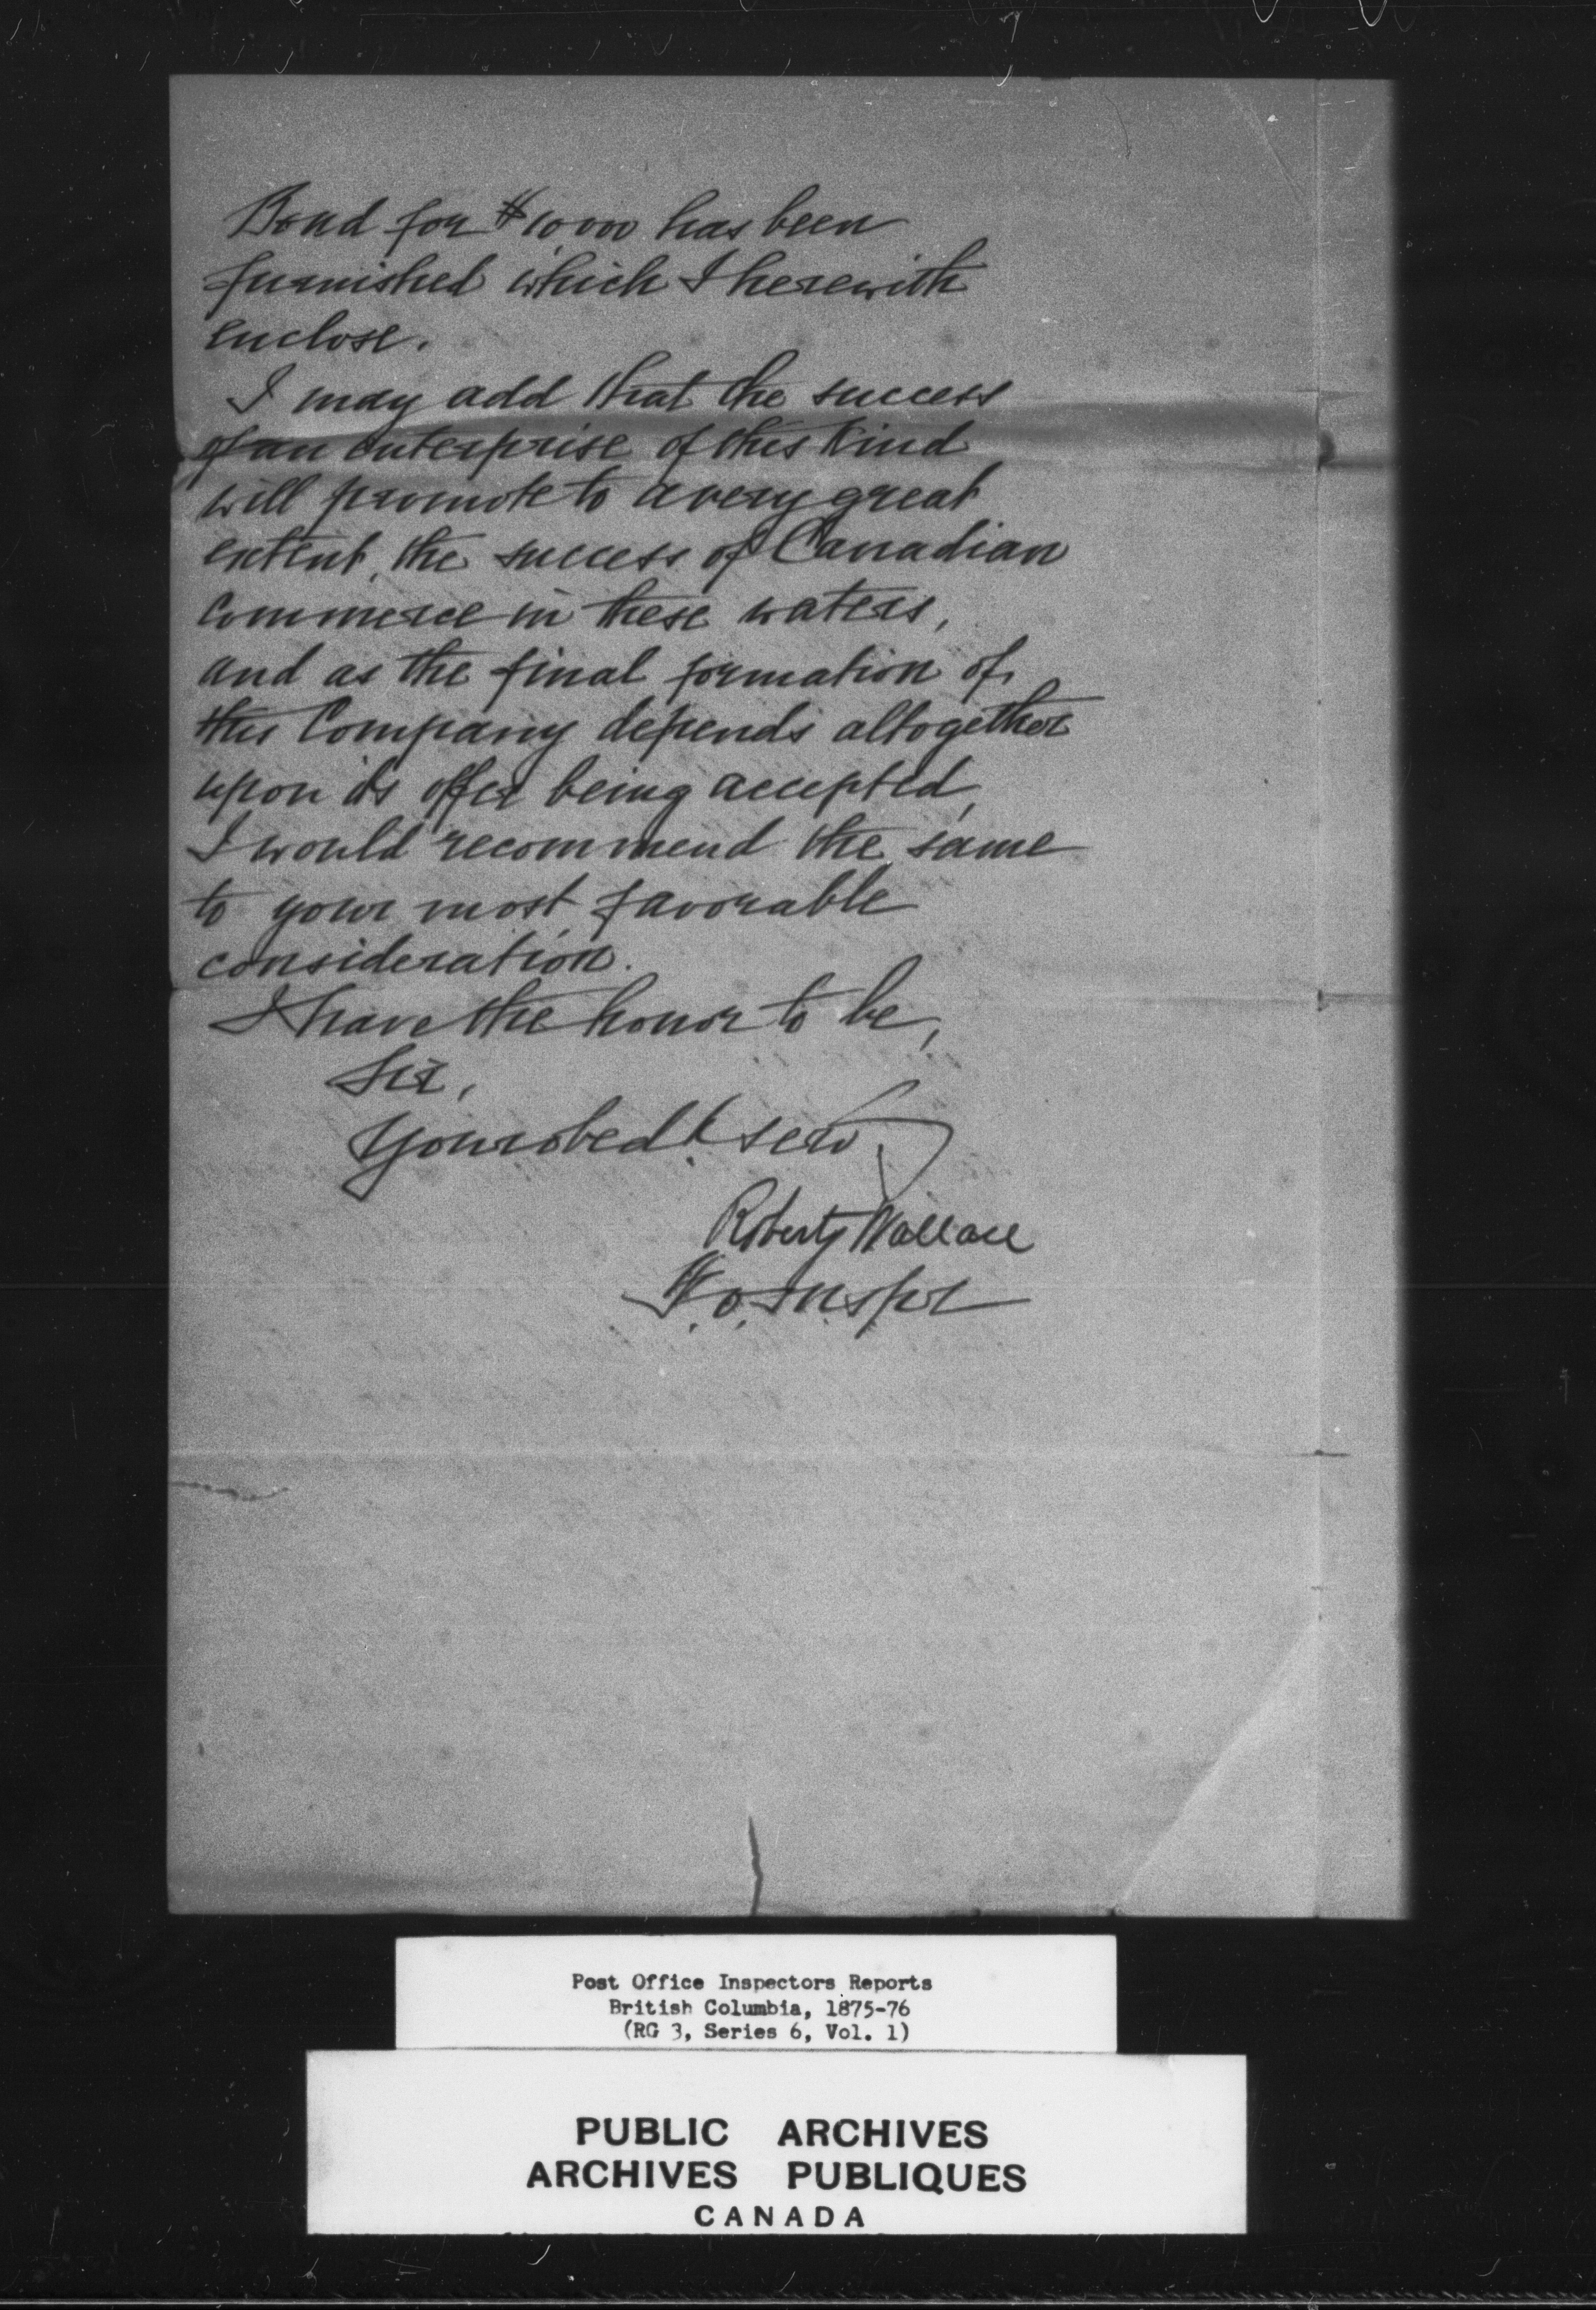 Bond for $10,000 has been
furnished which I herewith
enclose.
I may add that the success
of an enterprise of this kind
will promote to a very great
extent, the success of Canadian
Commerce in these waters,
and as the final formation of
this Company depends altogether
upon its offer being accepted,
I would recommend the same
to your most favorable
consideration.
I have the honor to be,
Sir,
Your obedt serv
Robert Wallace
P.O. Inspr
Post Office Inspectors Reports
British Columbia, 1875-76
(RG 3, Series 6, Vol. 1)
PUBLIC ARCHIVES
ARCHIVES PUBLIQUES
CANADA